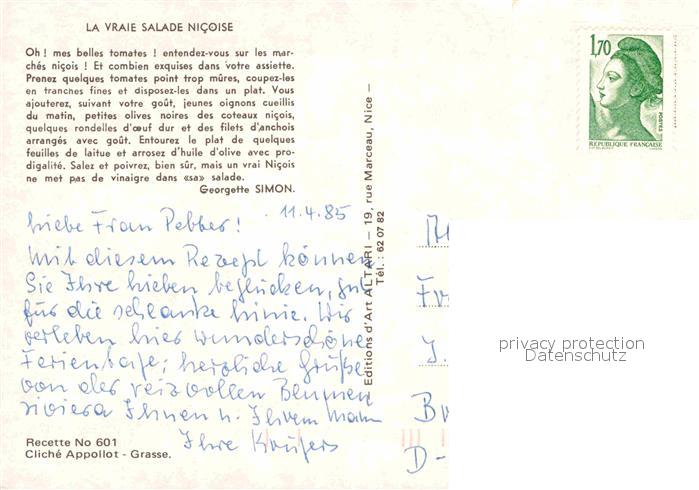 LA VRAIE SALADE NIÇOISE
Oh ! mes belles tomates ! entendez-vous sur les mar-
chés niçois ! Et combien exquises dans votre assiette.
Prenez quelques tomates point trop mûres, coupez-les
en tranches fines et disposez-les dans un plat. Vous
ajouterez, suivant votre goût, jeunes oignons cueillis
du matin, petites olives noires des coteaux niçois,
quelques rondelles d'œuf dur et des filets d'anchois
arrangés avec goût. Entourez le plat de quelques
feuilles de laitue et arrosez d'huile d'olive avec pro-
digalité. Salez et poivrez, bien sûr, mais un vrai Niçois
ne met pas de vinaigre dans «sa» salade.
Georgette SIMON.
11.4.85
Liebe Frau Pebber!
Mit diesem Rezept können
Sie Ihre Lieben beglücken, gut
für die schlanke Linie. Wir
verleben hier wunderschöne
Ferientage; herzliche Grüße
von der reizvollen Blumen
riviera Ihnen u. Ihrem Mann
Ihre Krügers
Recette No 601
Cliché Appollot - Grasse.
Editions d'Art ALTARI – 19, rue Marceau, Nice –
Tél. : 62 07 82
1,70
POSTES
REPUBLIQUE FRANÇAISE
Fr
J.
D-
privacy protection
Datenschutz